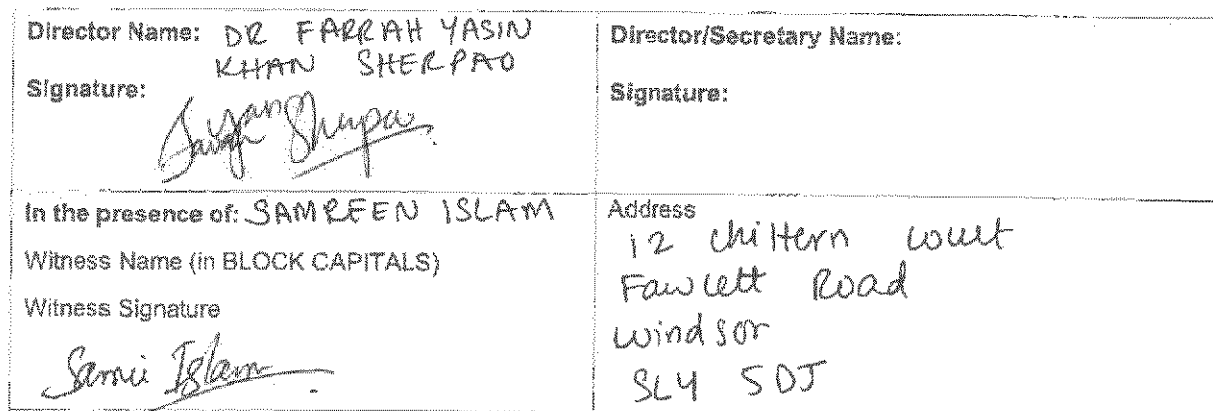 Director Name: DR FARRAH YASIN
KHAN SHERPAO
Signature:
Director/Secretary Name:
Signature:
In the presence of: SAMREEN ISLAM
Witness Name (in BLOCK CAPITALS)
Witness Signature
Samre Islam
Address
12 chiltern court
Fawcett Road
windsor
SL4 5DJ